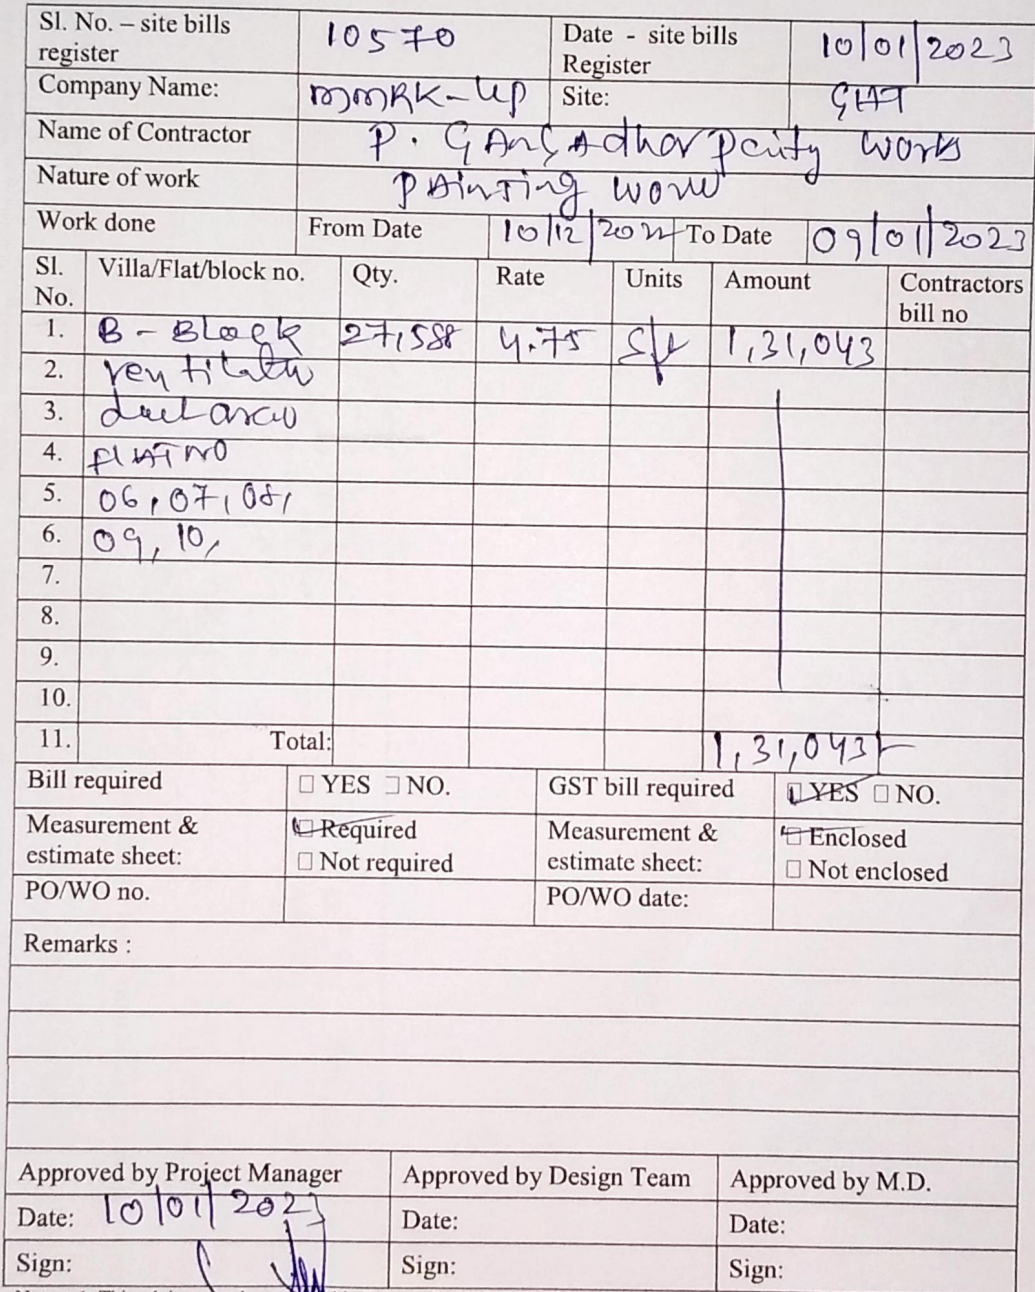 Sl. No. – site bills register 10570 Date - site bills Register 10/01/2023
Company Name: MMRK-UP Site: GHT
Name of Contractor P. GAnGAdhar Painty works
Nature of work PAinTing work
Work done From Date 10/12/2022 To Date 09/01/2023
Sl. No. Villa/Flat/block no. Qty. Rate Units Amount Contractors bill no
1. B - Block 27,588 4.75 sft 1,31,043
2. ventilatu
3. duct area
4. FLAT NO
5. 06, 07, 08,
6. 09, 10,
7.
8.
9.
10.
11. Total: 1,31,043/-
Bill required □ YES □ NO. GST bill required □ YES □ NO.
Measurement & estimate sheet: □ Required □ Not required Measurement & estimate sheet: □ Enclosed □ Not enclosed
PO/WO no. PO/WO date:
Remarks :
Approved by Project Manager Approved by Design Team Approved by M.D.
Date: 10/01/2023 Date: Date:
Sign: Sign: Sign: